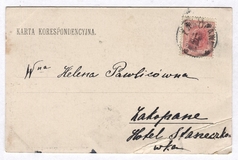 KARTA KORESPONDENCYJNA.
Wna Helena Pawlicówna
Zakopane
Hotel Staneczkó
wka